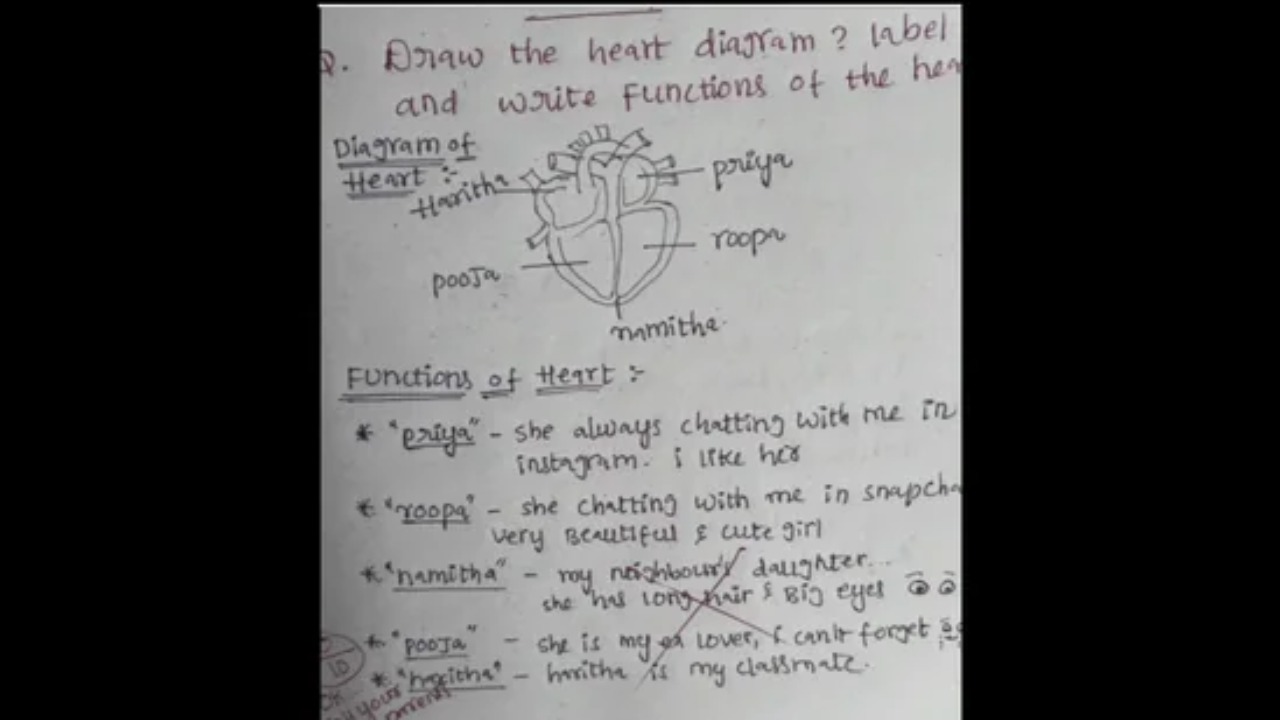 Q. Draw the heart diagram? label
and write functions of the hea
Diagram of
Heart :-
Haritha
priya
roopa
pooja
namitha.
Functions of Heart :-
* "priya" - she always chatting with me in
instagram. i like her
* "roopa" - she chatting with me in snapcha
very Beautiful & cute girl
* "namitha" - my neighbour's daughter...
she has long hair & Big eyes
* "pooja" - she is my ex lover, i can't forget
10
* "haritha" - haritha is my classmate.
your
parents